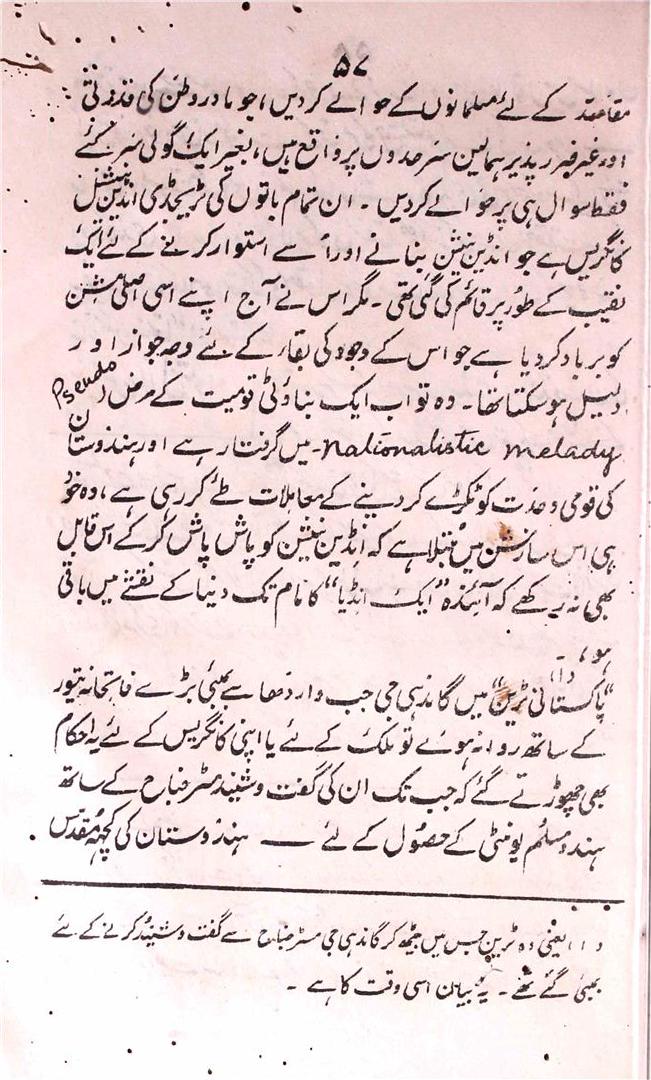 ۵۷
مقاصد کے لئے مسلمانوں کے حوالے کردیں، جو مادر وطن کی قدرتی
اور غیر تغیر پذیر ہمالین سرحدوں پر واقع ہیں، بغیر ایک گولی سَر کئے
فقط سوال ہی پر حوالے کردیں ۔ ان تمام باتوں کی ٹریجڈی انڈین نیشنل
کانگریس ہے جو انڈین نیشن بنانے اور اُسے استوار کرنے کے لئے ایک
نقیب کے طور پر قائم کی گئی تھی ۔ مگر اس نے آج اپنے اسی اصلی مشن
کو برباد کردیا ہے جو اس کے وجود کی بقار کے لئے وجہ جواز اور
دلیل ہوسکتا تھا ۔ وہ تو اب ایک بناوٹی قومیت کے مرض (Pseudo
nationalistic melady ـ میں گرفتار ہے اور ہندوستان
کی قومی وحدت کو ٹکڑے کردینے کے معاملات طے کر رہی ہے ، وہ خود
ہی اس سازش میں مُبتلا ہے کہ انڈین نیشن کو پاش پاش کرکے اس قابل
بھی نہ رکھے کہ آئندہ "ایک انڈیا" کا نام تک دنیا کے نقشے میں باقی
ہو ، ۔
"پاکستانی ٹرین" (۱) میں گاندھی جی جب واردھا سے بمبئی بڑے فاتحانہ تیور
کے ساتھ روانہ ہوئے تو ملک کے لئے یا اپنی کانگریس کے لئے یہ احکام
بھی چھوڑتے گئے کہ جب تک ان کی گفت و شنید مسٹر جناح کے ساتھ
ہندو مسلم یونٹی کے حصُول کے لئے — ہندوستان کی کچھ مُقدس
(۱) یعنی وہ ٹرین جس میں بیٹھ کر گاندھی جی مسٹر جناح سے گفت و شنید کرنے کے لئے
بمبئی گئے تھے ۔ یہ بیان اسی وقت کا ہے ۔